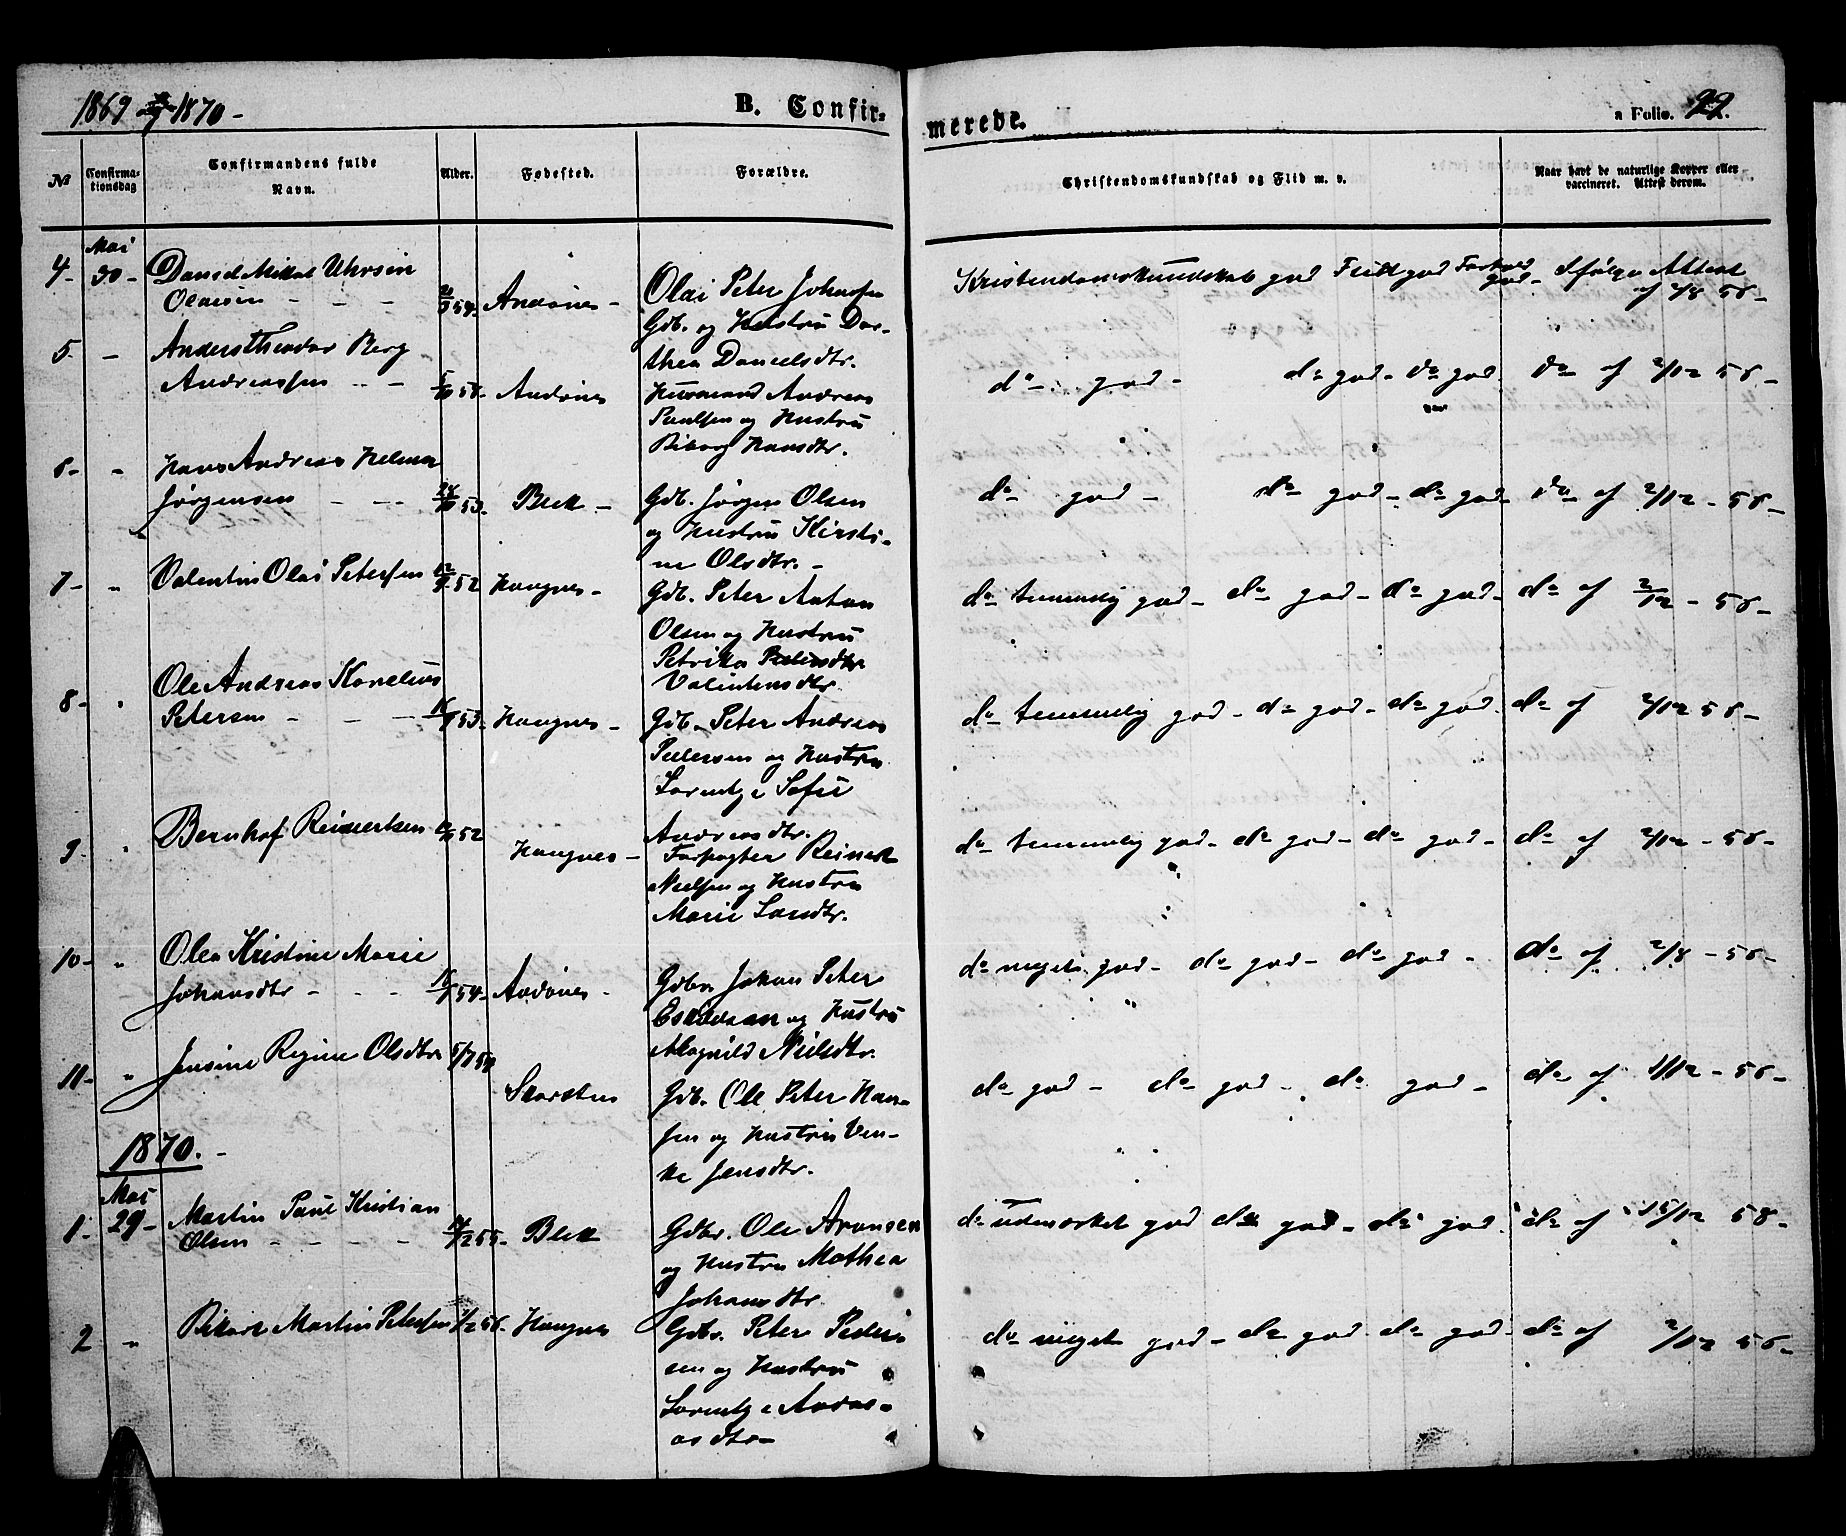 1869 1870 -
B. Confir-
merede.
a Folio. 22.
No
Confirma-
tionsdag
Confirmandens fulde
Navn.
Alder.
Fødested.
Forældre.
Christendomskundskab og Flid m. v.
Naar havt de naturlige Kopper eller
vaccineret. Attest derom.
4- Mai
30-
Olaisen - - -
54. Andønes -
Olai Peter Johnsen
Gdb. og Hustru Dor-
thea Danielsdtr.
Kristendomskundskab god Flid god Forhold god - Ifølge Attest
af 2/8 56-
5- - Anders Theodor Berg
Andreassen - - Andønes
Husmand Andreas
Paulsen og Hustru
Hansdtr.
do god - do god - do god do af 2/12 56-
6- " Hans Andreas Helmer
Jørgensen - - 53. Blek -
Gdb. Jørgen Olsen
og Hustru Kirsti-
ne Olsdtr. -
do god - do god - do god - do af 2/12 - 56-
7- " Valentin Olai Petersen 52 Haugnes -
Gdb. Peter Anton
Olsen og Hustru
Petrika
Valentinsdtr.
do temmelig god - do god - do god - do af 2/12 - 56-
8- " Ole Andreas Kornelius
Petersen - - - 53. Haugnes -
Gdb. Peter Andreas
Pedersen og Hustru
Lorentze Sofie
Andreasdtr.
do temmelig god - do god - do god - do af 2/12 56-
9- " Bernhof Reinertsen 52 Haugnes -
Forpagter Reinert
Nielsen og Hustru
Marie Larsdtr.
do temmelig god - do god - do god - do af 2/12 - 56-
10- " Olea Kristine Marie
Johansdtr - - - 54- Andønes -
Gdbr Johan Peter
og Hustru
Magnild Nielsdtr.
do meget god - do god - do god - do af 2/8 - 56-
11- " Jensine Regine Olsdtr 5/7 54
Skarsten
Gdb. Ole Peter Han-
sen og Hustru Ven-
ke Jensdtr.
do god - do god - do god - do af 2/12 - 56-
1870. -
Mai
1- 29- Martin Paul Kristian
Olsen - - - - 55- Blek
Gdbr. Ole Aronsen
og Hustru Mathea
Johansdtr.
do udmærket god do god - do god do af 15/12 58-
2 " Rikart Martin Petersen 56- Haugnes
Gdbr. Peter Peder-
sen og Hustru
Lorentze Andre-
asdtr-
do meget god - do god do god - do af 2/12 56-